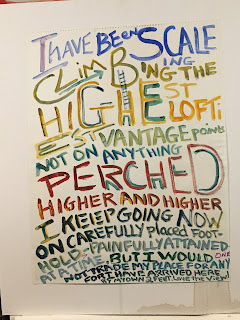 I HAVE BEEN SCALE
ING
CLIMBING THE
HIGHEST
LOFTI
EST VANTAGE POINTS
NOT ON ANYTHING
PERCHED
HIGHER AND HIGHER
I KEEP GOING NOW
ON CAREFULLY PLACED FOOT-
HOLDS PAINFULLY ATTAINED
ONE
AT A TIME. BUT I WOULD
NOT TRADE MY PLACE FOR ANY
FOR I HAVE ARRIVED HERE
MY OWN 2 FEET. LOVE THE VIEW!